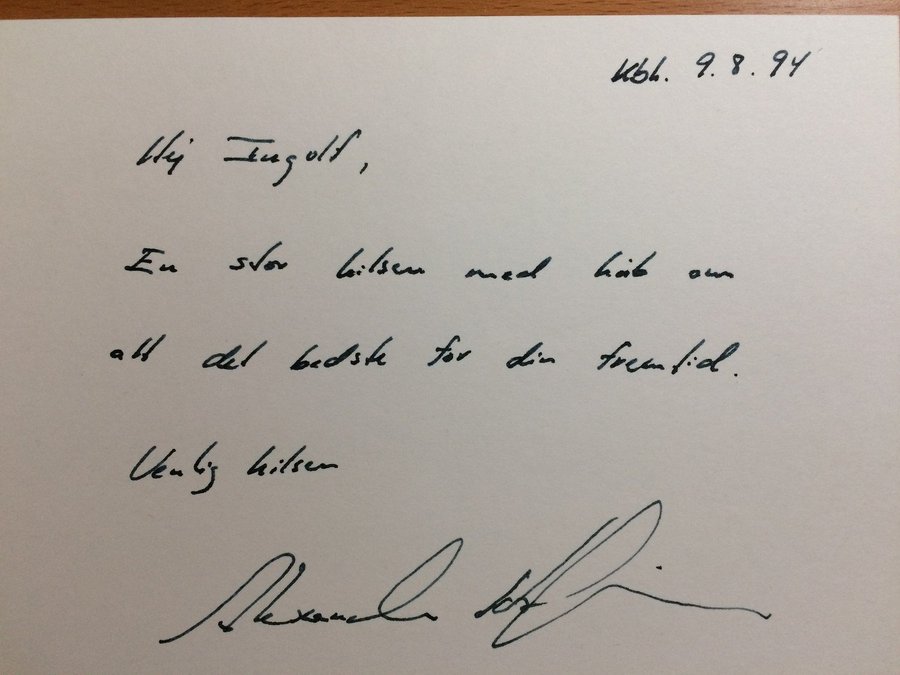 Kbh. 9.8.94
Hej Ingolf,
En stor hilsen med håb om
alt det bedste for din fremtid.
Venlig hilsen
Alexander